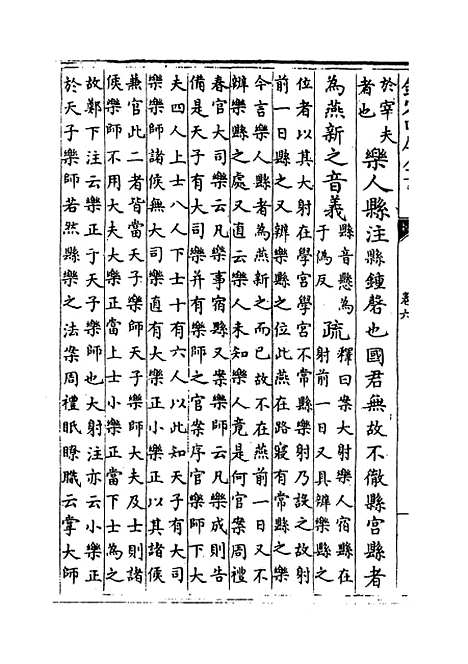 卷六
於宰夫
者也
樂人縣注縣鍾磬也國君無故不徹縣宮縣者
為燕新之音義
縣音懸為
于偽反
疏
釋曰案大射樂人宿縣在
射前一日又具辨樂縣之
位者以其大射在學宮學宮不常縣樂射乃設之故射
前一日縣之又辨樂縣之位此燕在路寢有常縣之樂
今言樂人縣者為燕新之而已故不在燕前一日又不
辨樂縣之處又直云樂人未知樂人竟是何官案周禮
春官大司樂云凡樂事宿縣又案樂師云凡樂成則告
備是天子有大司樂并有樂師之官案序官樂師下大
夫四人上士八人下士十有六人以此知天子有大司
樂樂師諸侯無大司樂直有大樂正小樂正以其諸侯
兼官此二者皆當天子樂師天子樂師大夫及士則諸
侯樂師不用大夫大樂正當上士小樂正當下士為之
故鄭下注云樂正于天子樂師也大射注亦云小樂正
於天子樂師若然縣樂之法案周禮眂瞭職云掌大師